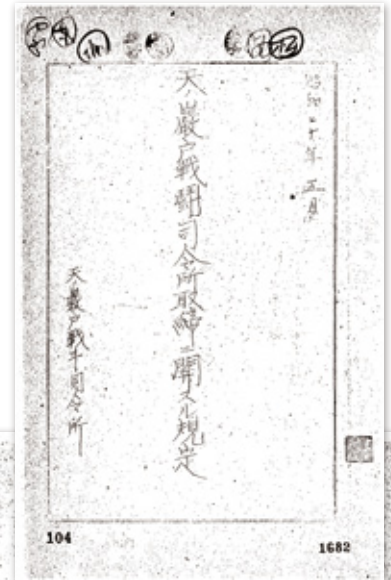 昭和二十年 五月
天巌戸戰鬪司令所取締ニ關スル規定
天巌戸戦斗司令所
104
1682